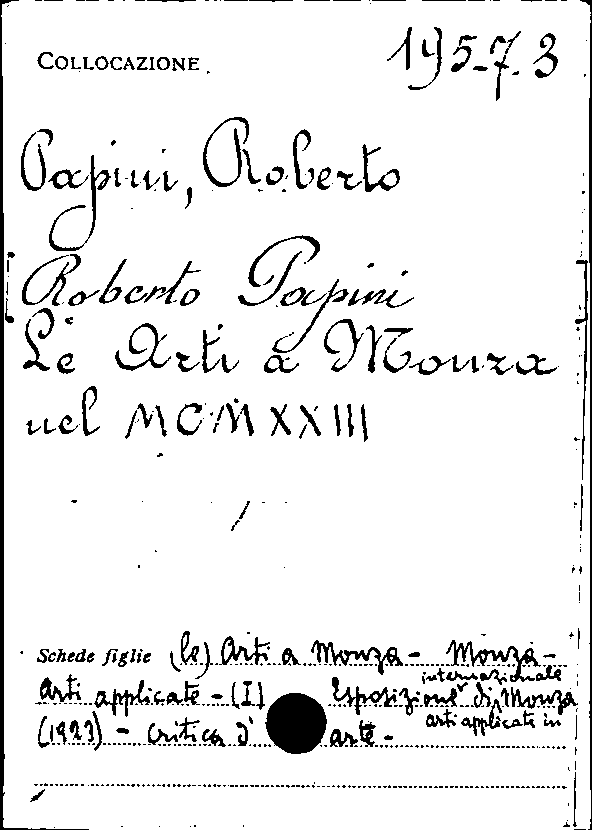 COLLOCAZIONE 195.7.3
Papini, Roberto
Roberto Papini
Le Arti a Monza
nel MCMXXIII
Schede figlie (le) Arti a Monza - Monza -
internazionale
Arti applicate - (I) Esposizione di Monza
arti applicate in
(1923) - Critica d' arte -